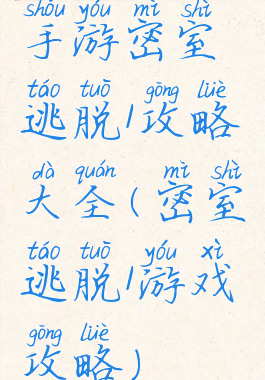 shǒu yóu mì shì
手游密室
táo tuō gōng lüè
逃脱/攻略
dà quán mì shì
大全(密室
táo tuō yóu xì
逃脱/游戏
gōng lüè
攻略)